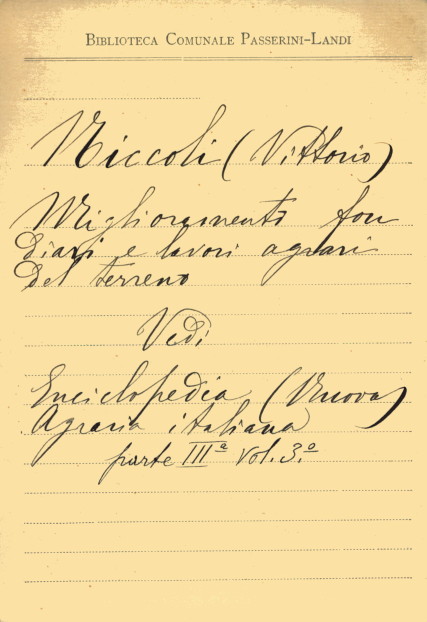 BIBLIOTECA COMUNALE PASSERINI-LANDI
Niccoli (Vittorio)
Miglioramenti fon
diari e lavori agrari
del terreno
Vedi
Enciclopedia (Nuova)
Agraria italiana
parte IIIª vol. 3.º